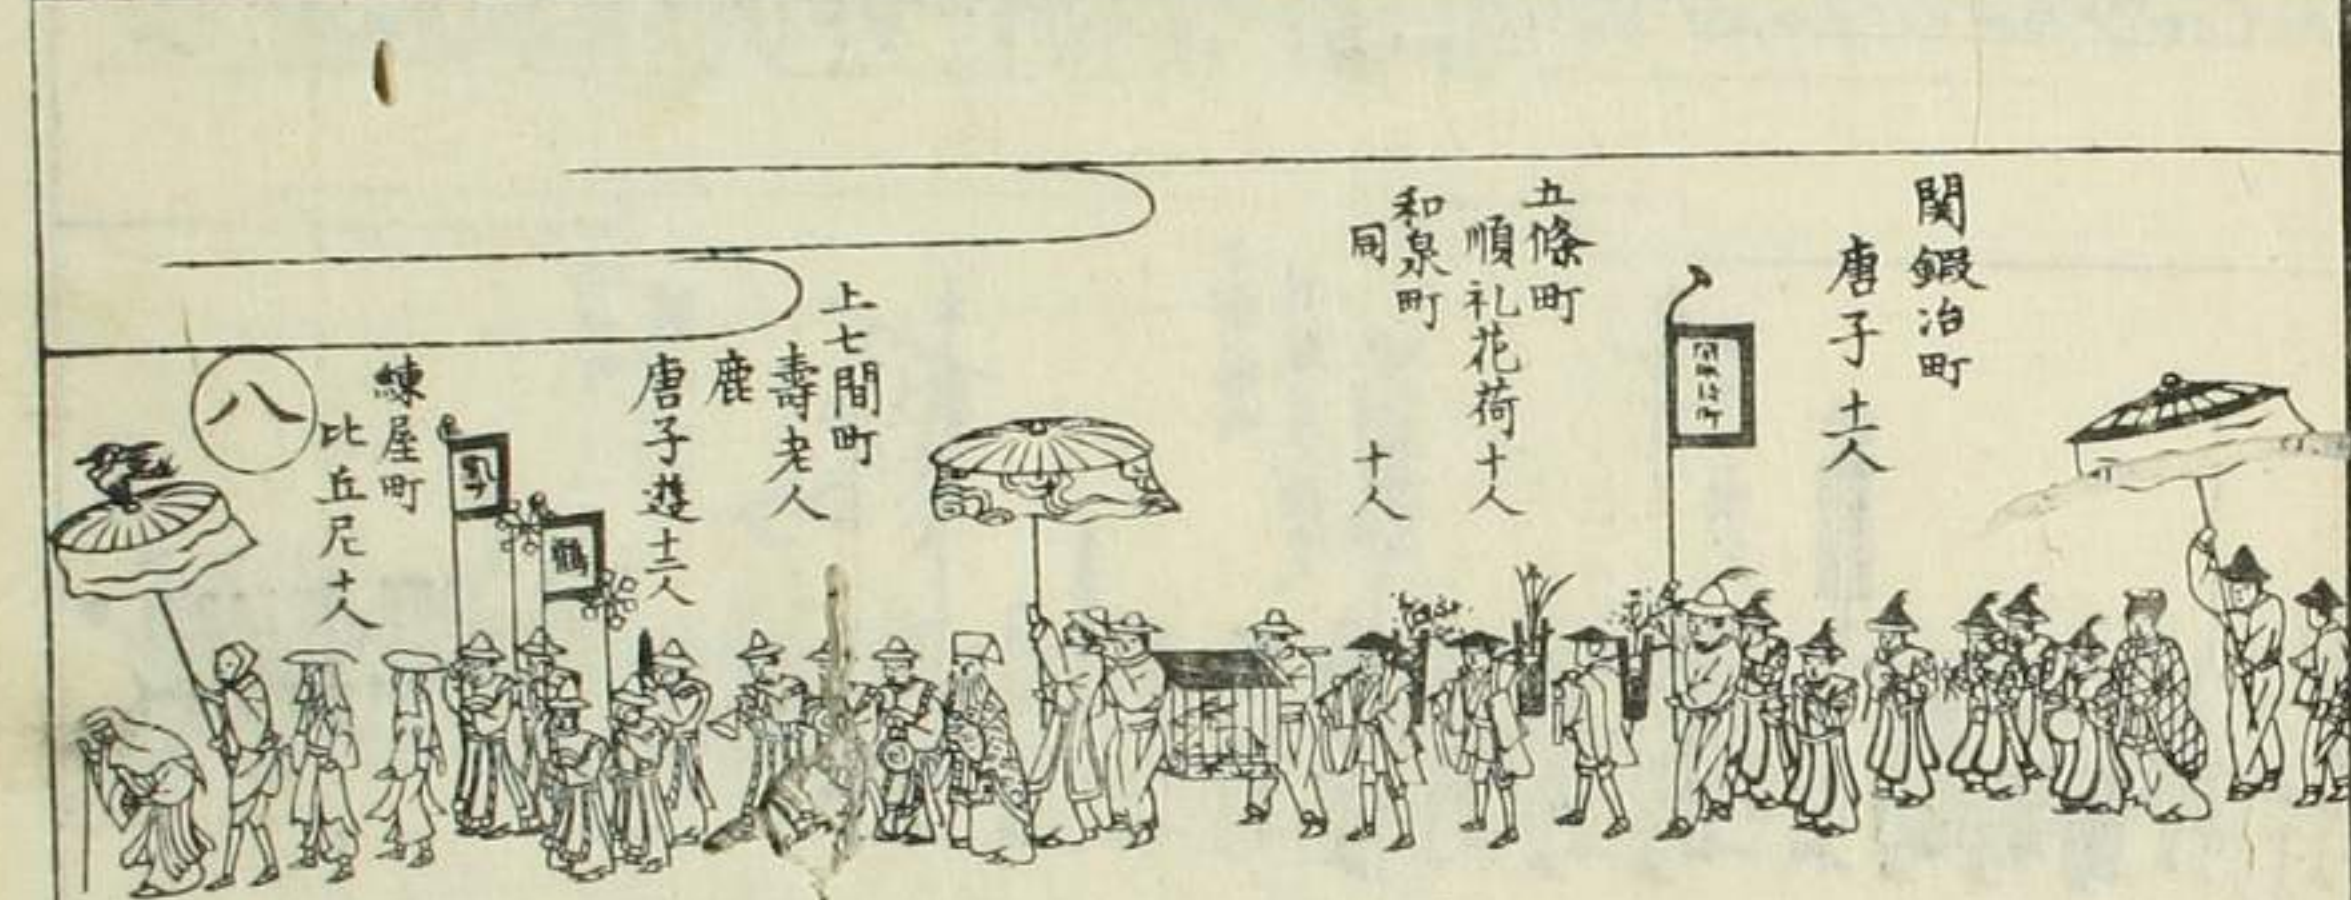 関鍜冶町
唐子 十一人
関鍜冶町
五條町
順礼花荷 十人
和泉町
同 十人
上七間町
壽老人
鹿
唐子遊十二人
鶴
練屋町
比丘尼十人
八